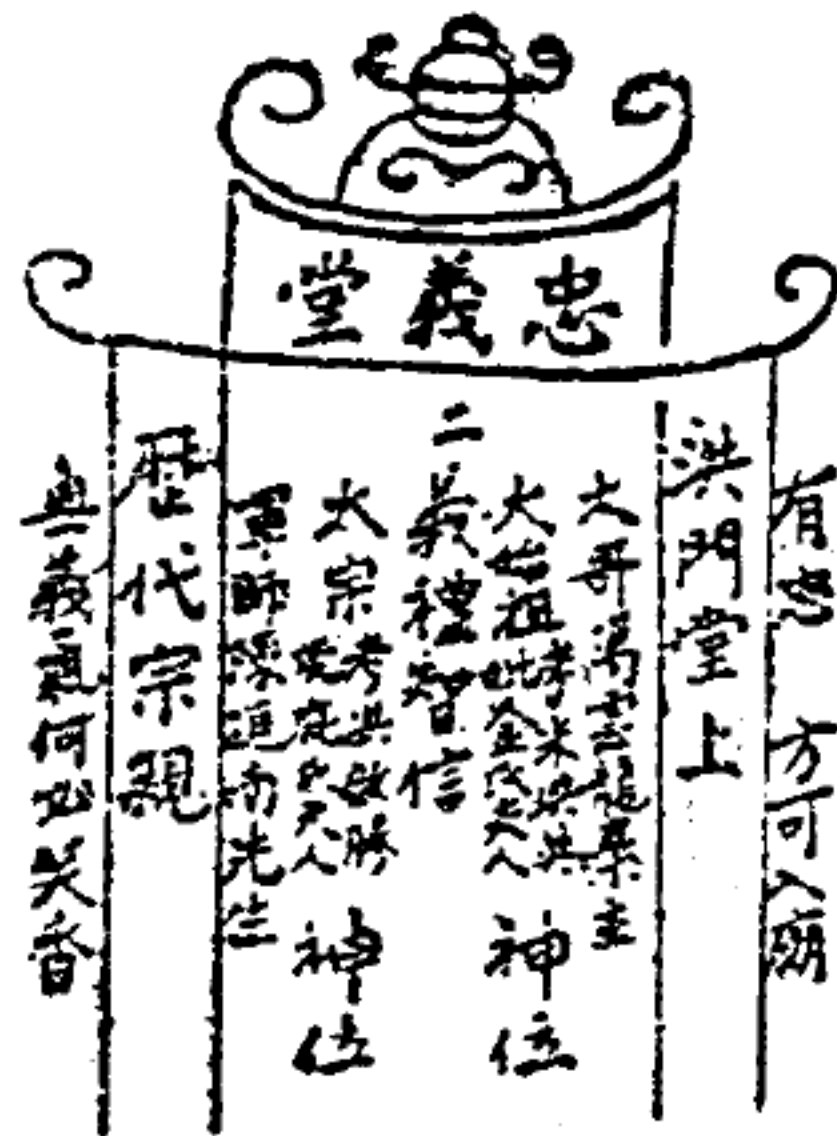 忠義堂
有忠 方可入廟
洪門堂上
大哥萬雲龍
大始祖考朱洪英妣金氏夫人神位
二義禮智信
太宗考洪啟勝 神位
軍師陳近南先生
歷代宗親
無義 何必炎香